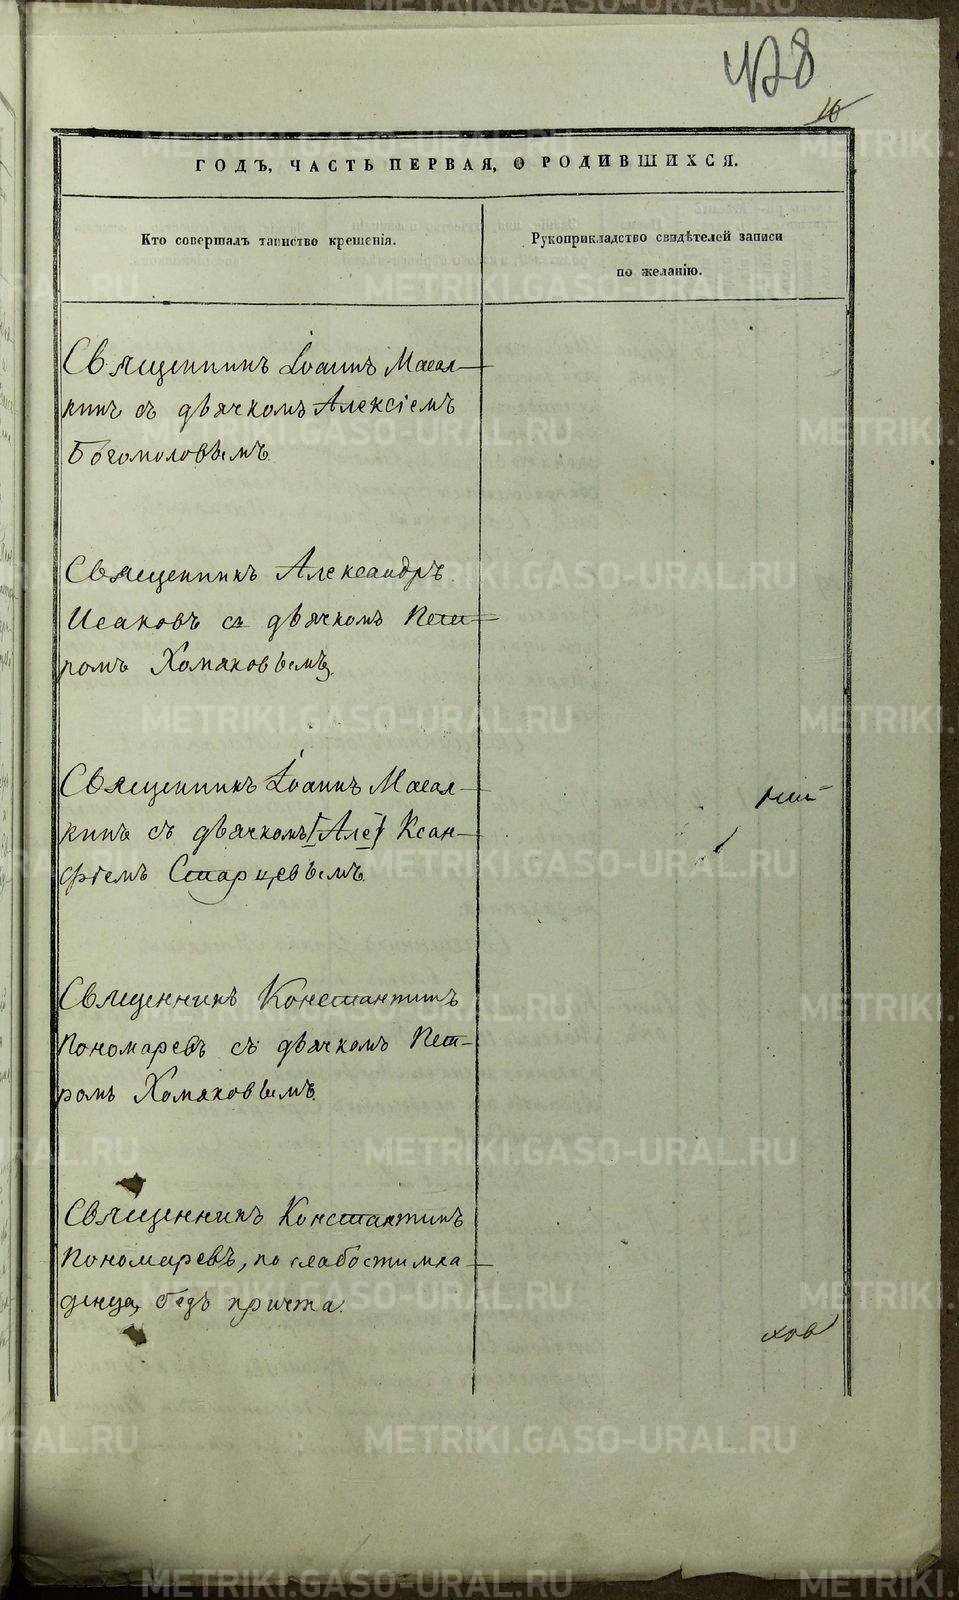 428
16
ГОДЪ, ЧАСТЬ ПЕРВАЯ, О РОДИВШИХСЯ.
Кто совершалъ таинство крещенія.
Рукоприкладство свидѣтелей записи
по желанію.
Священникъ Іоаннъ Масал-
кинъ съ дьячкомъ Алексіемъ
Богомоловымъ.
Священникъ Александръ
Исаковъ съ дьячкомъ Пет-
ромъ Хомяковымъ.
Священникъ Іоаннъ Масал-
кинъ съ дьячкомъ [Але] Ксан-
фіемъ Старцевымъ.
Священникъ Константинъ
Пономаревъ съ дьячкомъ Пет-
ромъ Хомяковымъ.
Священникъ Константинъ
Пономаревъ, по слабости мла-
денца, безъ причта.
ховъ
METRIKI.GASO-URAL.RU